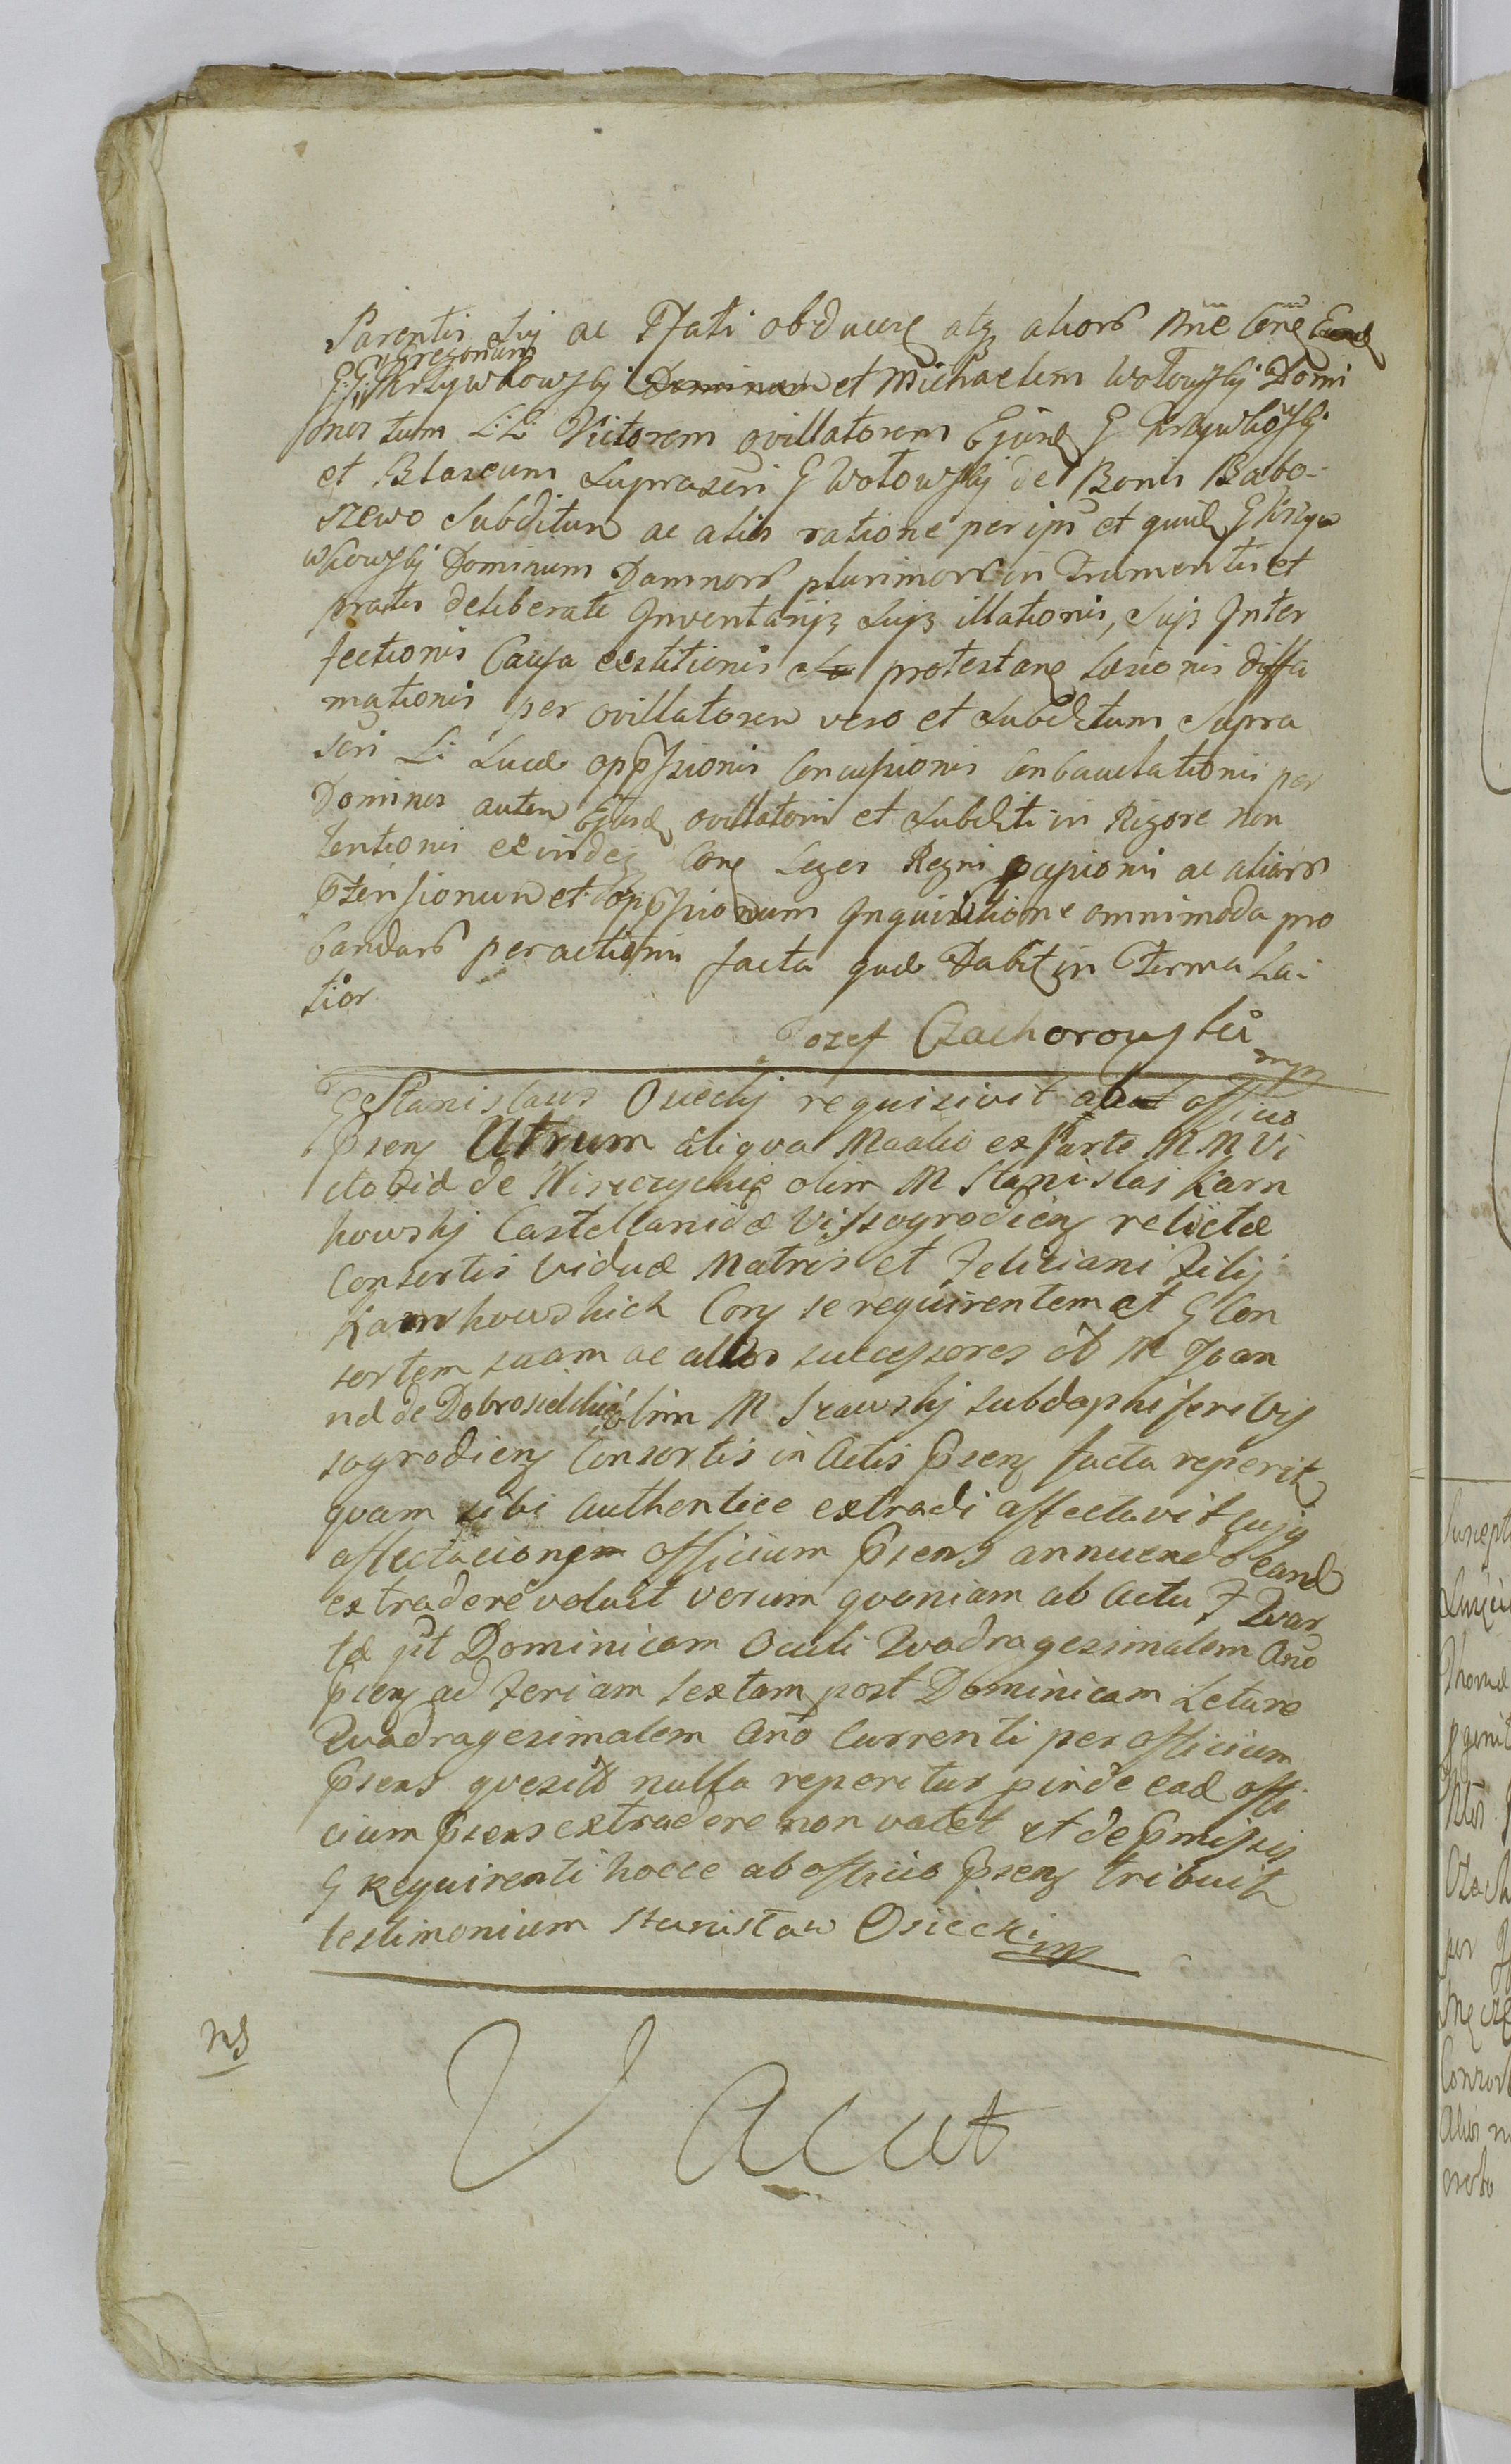 Parentis sui ac Pfati obducere atq aliors nne Cone
G:G: Gregorium Krzywkowskj Dominum et Michaelem Wołowskj Domi
nos tum L:L: Victorem ovillatorem Ejusd G Krzywkowskj
et Blasium suprascri G Wołowskj de Bonis Babo-
szewo Subditum ac alios ratione per ips et quidē G Krzyw
wkowskj Dominum Damnors plurimors in Frumentis et
pratis deliberate Inventarijs suis illationis, sujs Inter
fectionis Causa exstitionis protestane læsionis diffa
mationis per ovillatorem vero et subditum supra
scri L: Lucæ oppssionis Concussionis per
Dominos autem Ejusd ovillatoris et subditi in Rigore non
tentionis exindeq Cone Leges Regni passionis ac aliars
ptensionum et oppssionum Inquisitione omnimoda pro
bandars peractionis facta quæ Dabit in Termæ La-
tior
Jozef Czachorowski mp
G Stanislaus Osiecky requisivit ab officio
psens Utrum aliqua Maalio ex Parte M M Vi
ctoriæ de Misiczychie olim M Stanislai Karn
kowskj Castellanidæ Vissogrodiens relictæ
Consortis Viduæ Matris et Feliciani Filij
Karnkowskich Cony se requirentem et G Con
sortem suam ac alios successores ol M Joan
næ de Dobrosielskie olim M Szawskj subdapiferi Vis
sogrodiens Consortis in Actis psens facta reperit
quam sibi authentice extradi affectavit cujus
affectationem officium psens annuendo eand
extradere voluit verum quoniam ab Actu F Quar
tæ pt Dominicam Oculi Quadragesimalem Ano
psens ad Feriam sextam post Dominicam Letare
Quadragesimalem Ano Currenti per officium
psens quesita nulla reperitur pinde ead offi
cium psens extradere non valet et de pmissis
G Requirenti hocce ab officio psens tribuit
testimonium Stanisław Osiecki mp
NS
Vacat